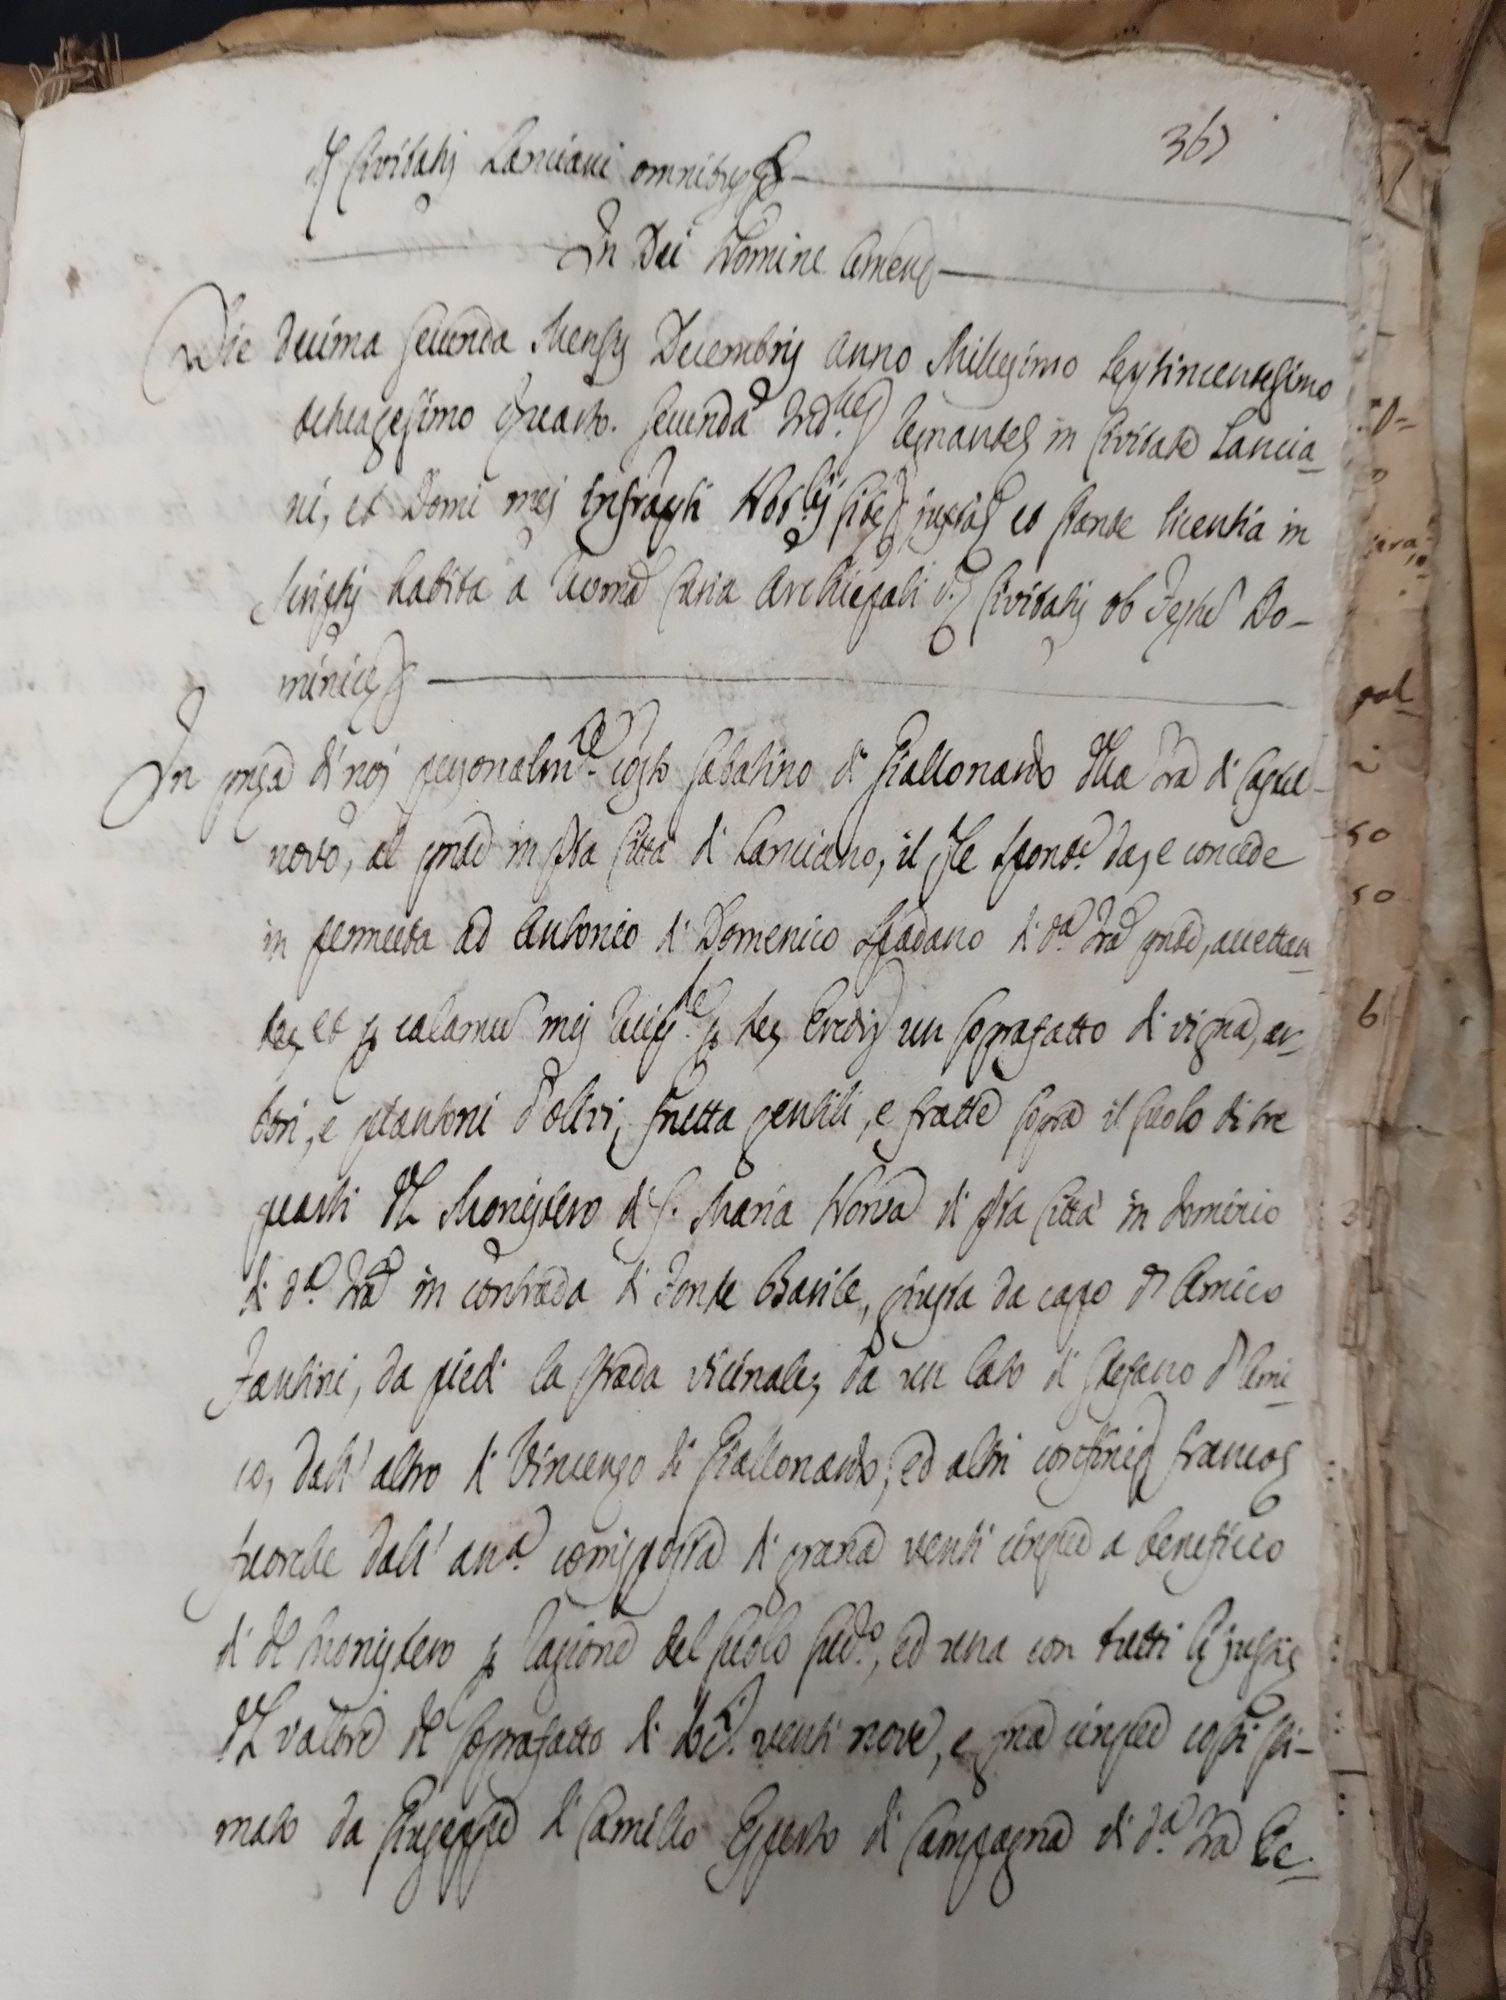 367
Civitatis Lanciani omnibus
In Dei Nomine Amen
Die decima secunda Mensis Decembris anno Millesimo Septincentesimo
octuagesimo quarto. Secunda Ind.ne Regnante in Civitate Lancia-
ni, et Domi mei infraptti Not.ij site juxta et stante licentia in
scriptis habita a Curia Archiepali d. Civitatis ob Festu Do-
minice
In pnza di noi personalm.te costo Sabatino di Giallonardo della Tra di Castel-
novo, al pnte in qsta Città di Lanciano, il qle spont.e da, e concede
in permuta ad Antonio di Domenico Spadano di d.a Tra pnte, accettan-
te, et p calamu mei p te, Eredi un soprafatto di vigna, ar-
bori, e piantoni d'olivi, frutta gentili, e fratte sopra il suolo di tre
quarti del Monistero di S. Maria Nova di qsta Città in dominio
di d.a Tra in contrada di Fonte Barile, giusta da capo d'Amico
Fantini, da piedi la strada vicinale, da un lato di Stefano d'Ami-
co, dall'altro di Vincenzo di Giallonardo, ed altri confini franco
fuorche dall' an.a corrisposta di grana venti cinque a beneficio
di do Monistero p ragione del suolo sud.o, ed una con tutti li jussi
del valore del soprafatto di D.ti venti nove, e gra cinque così sti-
mato da Giuseppe di Camillo Esperto di Campagna di d.a Tra Ec-